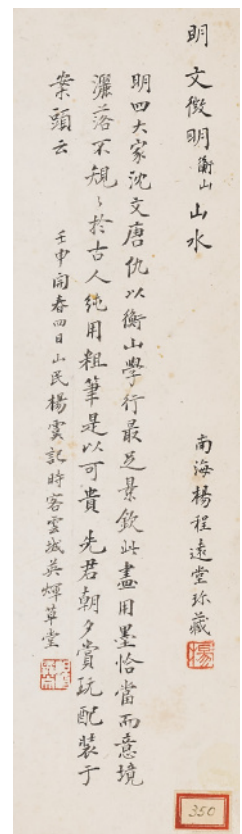 明 文徵明衡山 山水
南海楊程遠堂珍藏
楊
明四大家沈文唐仇以衡山學行最足景欽此畫用墨恰當而意境
灑落不規〻於古人純用粗筆是以可貴 先君朝夕賞玩配裝于
案頭云
壬申開春四日山民楊霙記時客雲城英輝草堂
350